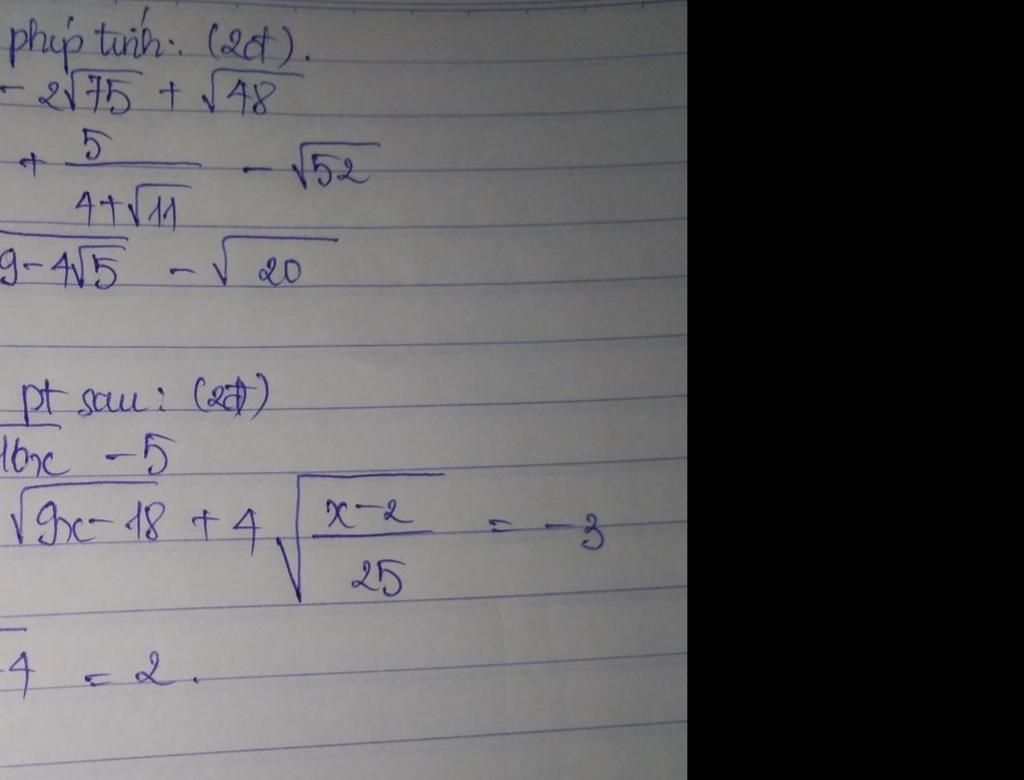 phép tính: (2đ).
- 2√75 + √48
+ 5/(4+√11) - √52
9 - 4√5 - √20
pt sau: (2đ)
16x - 5
√(9x - 18) + 4√((x - 2)/25) = -3
4 = 2.